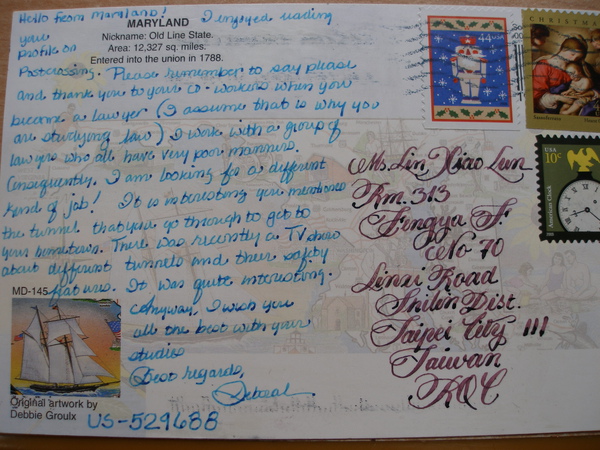 Hello from Maryland! I enjoyed reading
your
profile on
Postcrossing. Please remember to say please
and thank you to your co-workers when you
become a lawyer (I assume that is why you
are studying law) I work with a group of
lawyers who all have very poor manners.
Consequently, I am looking for a different
kind of job! It is interesting you mentioned
the tunnel that you go through to get to
your hometown. There was recently a TV show
about different tunnels and their safety
features. It was quite interesting.
Anyway, I wish you
all the best with your
studies
Best regards,
Deborah
US-529688
MARYLAND
Nickname: Old Line State.
Area: 12,327 sq. miles.
Entered into the union in 1788.
MD-145
Original artwork by
Debbie Groulx
44 USA
CHRISTMAS
USA
10c
American Clock
Ms. Lin Xiao Lun
Rm. 313
Fengya F.
No 70
Linxi Road
Shilin Dist.
Taipei City 111
Taiwan
ROC